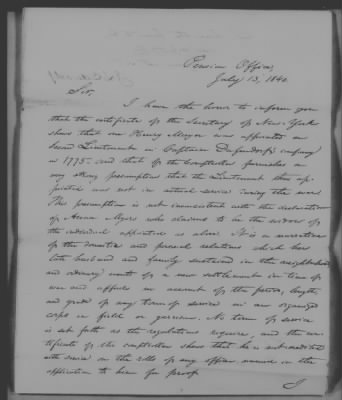 Pension Office,
July 13, 1840.
Sir,
I have the honor to inform you
that the certificate of the Secretary of New York
shows that one Henry Meyer was appointed a
second Lieutenant in Captain company
in 1775 and that of the Comptroller furnishes a
very strong presumption that the Lieutenant thus ap-
pointed was not in actual service during the war.
This presumption is not inconsistent with the declaration
of Anna Myers who claims to be the widow of
the individual appointed as above. It is a narration
of the domestic and personal relations which her
late husband and family sustained in the neighborhood
and ordinary events of a new settlement in time of
war and affords no account of the period, length
and grade of any term of service in an organized
corps in field or garrison. No term of service
is set forth as the regulations require, and the cer-
tificate of the comptroller shows that he is not credited
with service on the rolls of any officer named in the
application to him for proof.
I